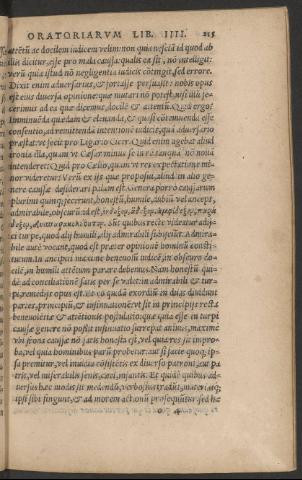 ORATORIARVM LIB. IIII. 215
attētū ac docilem iudicem velim: non quia nesciā id quod ab
illis dicitur, esse pro mala causa: qualis ea sit, nō intelligit:
verū quia istud nō negligentia iudicis cōtingit, sed errore.
Dixit enim aduersarius, & fortasse persuasit: nobis opus
est eius diuersa opinione: quæ mutari nō potest, nisi illū fe-
cerimus ad ea quæ dicemus, docilē & attentū. Quid ergo?
Imminuēda quædam & eleuanda, & quasi cōtemnenda esse
consentio, ad remittendā intentionē iudicis, quā aduersario
præstat: vt fecit pro Ligario Cicer. Quid enim agebat aliud
ironia illa, quàm vt Cæsar minus se in rē tanquā nō nouā
intenderet? Quid pro Cælio, quàm vt res expectatione mi-
nor videretur? Verū ex iis quæ proposui, aliud in alio ge-
nere causæ desiderari palam est. Genera porrò causarum
plurimi quinq; fecerunt, honestū, humile, dubiū vel anceps,
admirabile, obscurū: id est,
Sūt quibus rectè videtur adij-
ci turpe, quod alij humili, alij admirabili subijciūt. Admira-
bile autē vocant, quod est præter opinionē hominū consti-
tutum. In ancipiti maximè beneuolū iudicē, in obscuro do-
cilē, in humili attētum parare debemus. Nam honestū qui-
dē ad conciliationē satis per se valet: in admirabili & tur-
pi, remedijs opus est. Et eo quidā exordiū in duas diuidunt
partes, principiū, & insinuationē: vt sit in principijs recta
beneuolētiæ & attētionis postulatio: quæ quia esse in turpi
causæ genere nō possit, insinuatio surrepat animis, maximè
vbi frons causæ nō satis honesta est, vel quia res sit impro-
ba, vel quia hominibus parū probetur: aut si facie quoq; ip-
sa premitur, vel inuidia cōsistētis ex diuerso patroni, aut pa-
tris, vel miserabilis senis, cæci, infantis. Et quidē quibus ad-
uersus hæc modis sit medendū, verbosius tradūt, materiasq;
ipsi sibi fingunt, & ad morem actionū prosequūtur: sed hæ